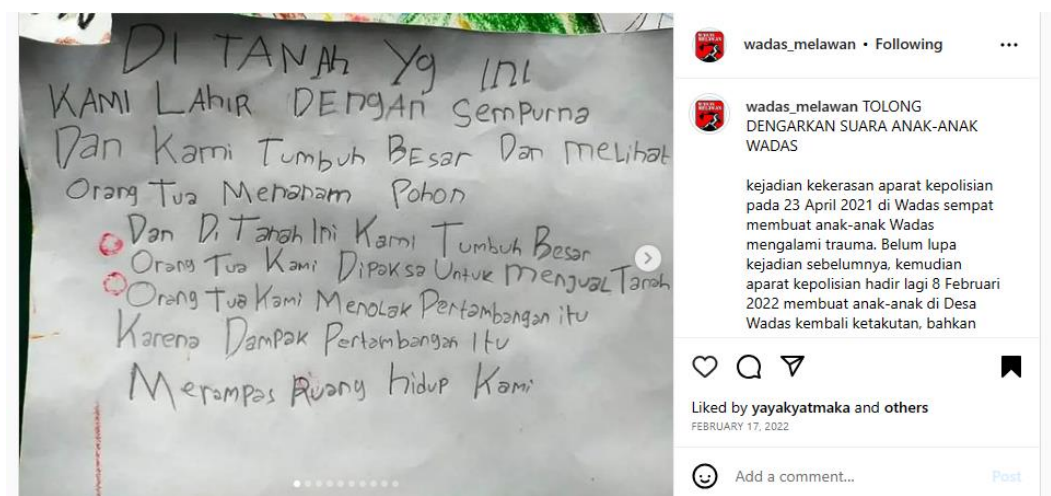 DI TANAh Yg INI
KAMI LAhIR DENgAN SemPurna
Dan Kami Tumbuh BEsar Dan meLihat
Orang Tua Menanam Pohon
Dan Di Tanah Ini Kami Tumbuh Besar
Orang Tua Kami DiPaksa Untuk menjuaL Tanah
Orang Tua Kami MenoLak Pertambangan itu
Karena DamPak Pertambangan Itu
MeramPas Ruang hiduP Kami
wadas_melawan • Following
wadas_melawan TOLONG
DENGARKAN SUARA ANAK-ANAK
WADAS
kejadian kekerasan aparat kepolisian
pada 23 April 2021 di Wadas sempat
membuat anak-anak Wadas
mengalami trauma. Belum lupa
kejadian sebelumnya, kemudian
aparat kepolisian hadir lagi 8 Februari
2022 membuat anak-anak di Desa
Wadas kembali ketakutan, bahkan
Liked by yayakyatmaka and others
FEBRUARY 17, 2022
Add a comment...
Post